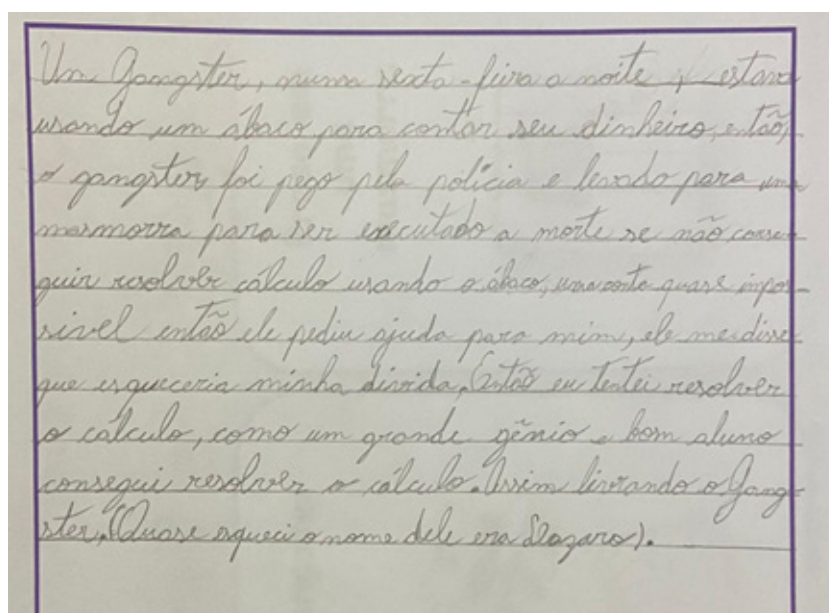 Um Gangster, numa sexta-feira a noite, estava
usando um ábaco para contar seu dinheiro, então,
o gangster foi pego pela polícia e levado para uma
masmorra para ser executado a morte se não conse-
guir resolver cálculo usando o ábaco, uma conta quase impos-
sivel então ele pediu ajuda para mim, ele me disse
que esqueceria minha divida. Então eu tentei resolver
o cálculo, como um grande gênio e bom aluno
consegui resolver o cálculo. Assim livrando o Gang-
ster. (Quase esqueci o nome dele era).